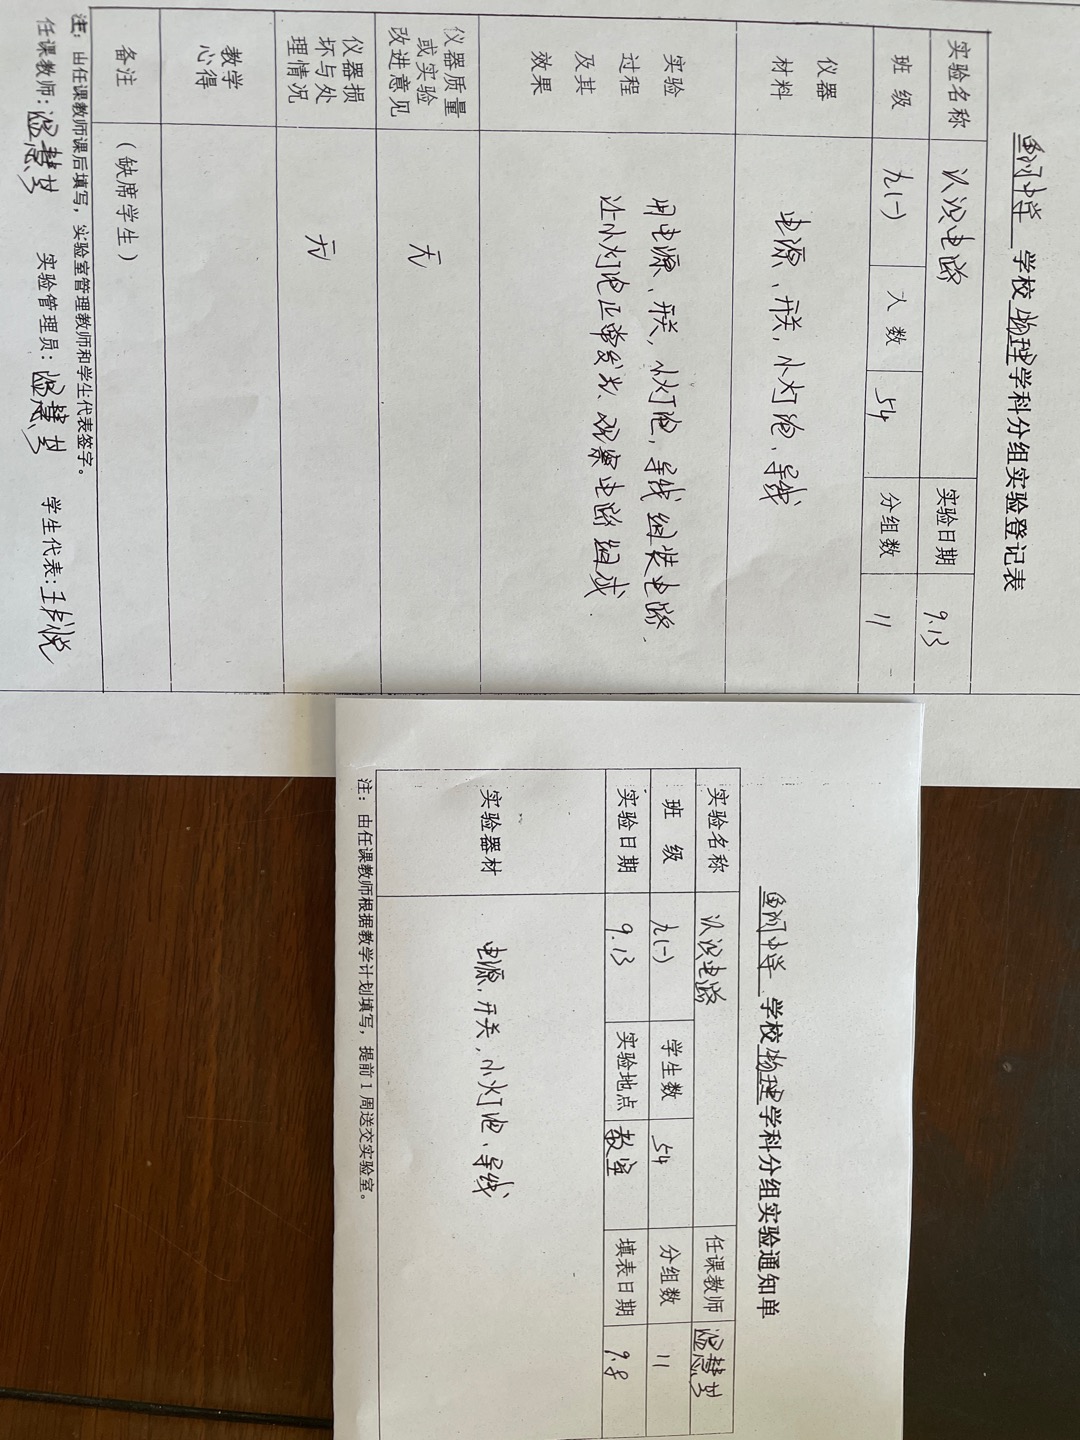 鱼河中学 学校物理学科分组实验登记表
实验名称 认识电路 实验日期 9.13
班级 九(一) 人数 54 分组数 11
仪器材料 电源、开关、小灯泡、导线
实验过程及其效果
用电源、开关、小灯泡、导线组装电路、
让小灯泡正常发光、观察电路组成
仪器质量或实验改进意见 无
仪器损坏与处理情况 无
教学心得
备注 (缺席学生)
注：由任课教师课后填写，实验室管理教师和学生代表签字。
任课教师: 实验管理员: 学生代表:
鱼河中学 学校物理学科分组实验通知单
实验名称 认识电路 任课教师
班级 九(一) 学生数 54 分组数 11
实验日期 9.13 实验地点 教室 填表日期 9.8
实验器材 电源、开关、小灯泡、导线
注：由任课教师根据教学计划填写，提前1周送交实验室。